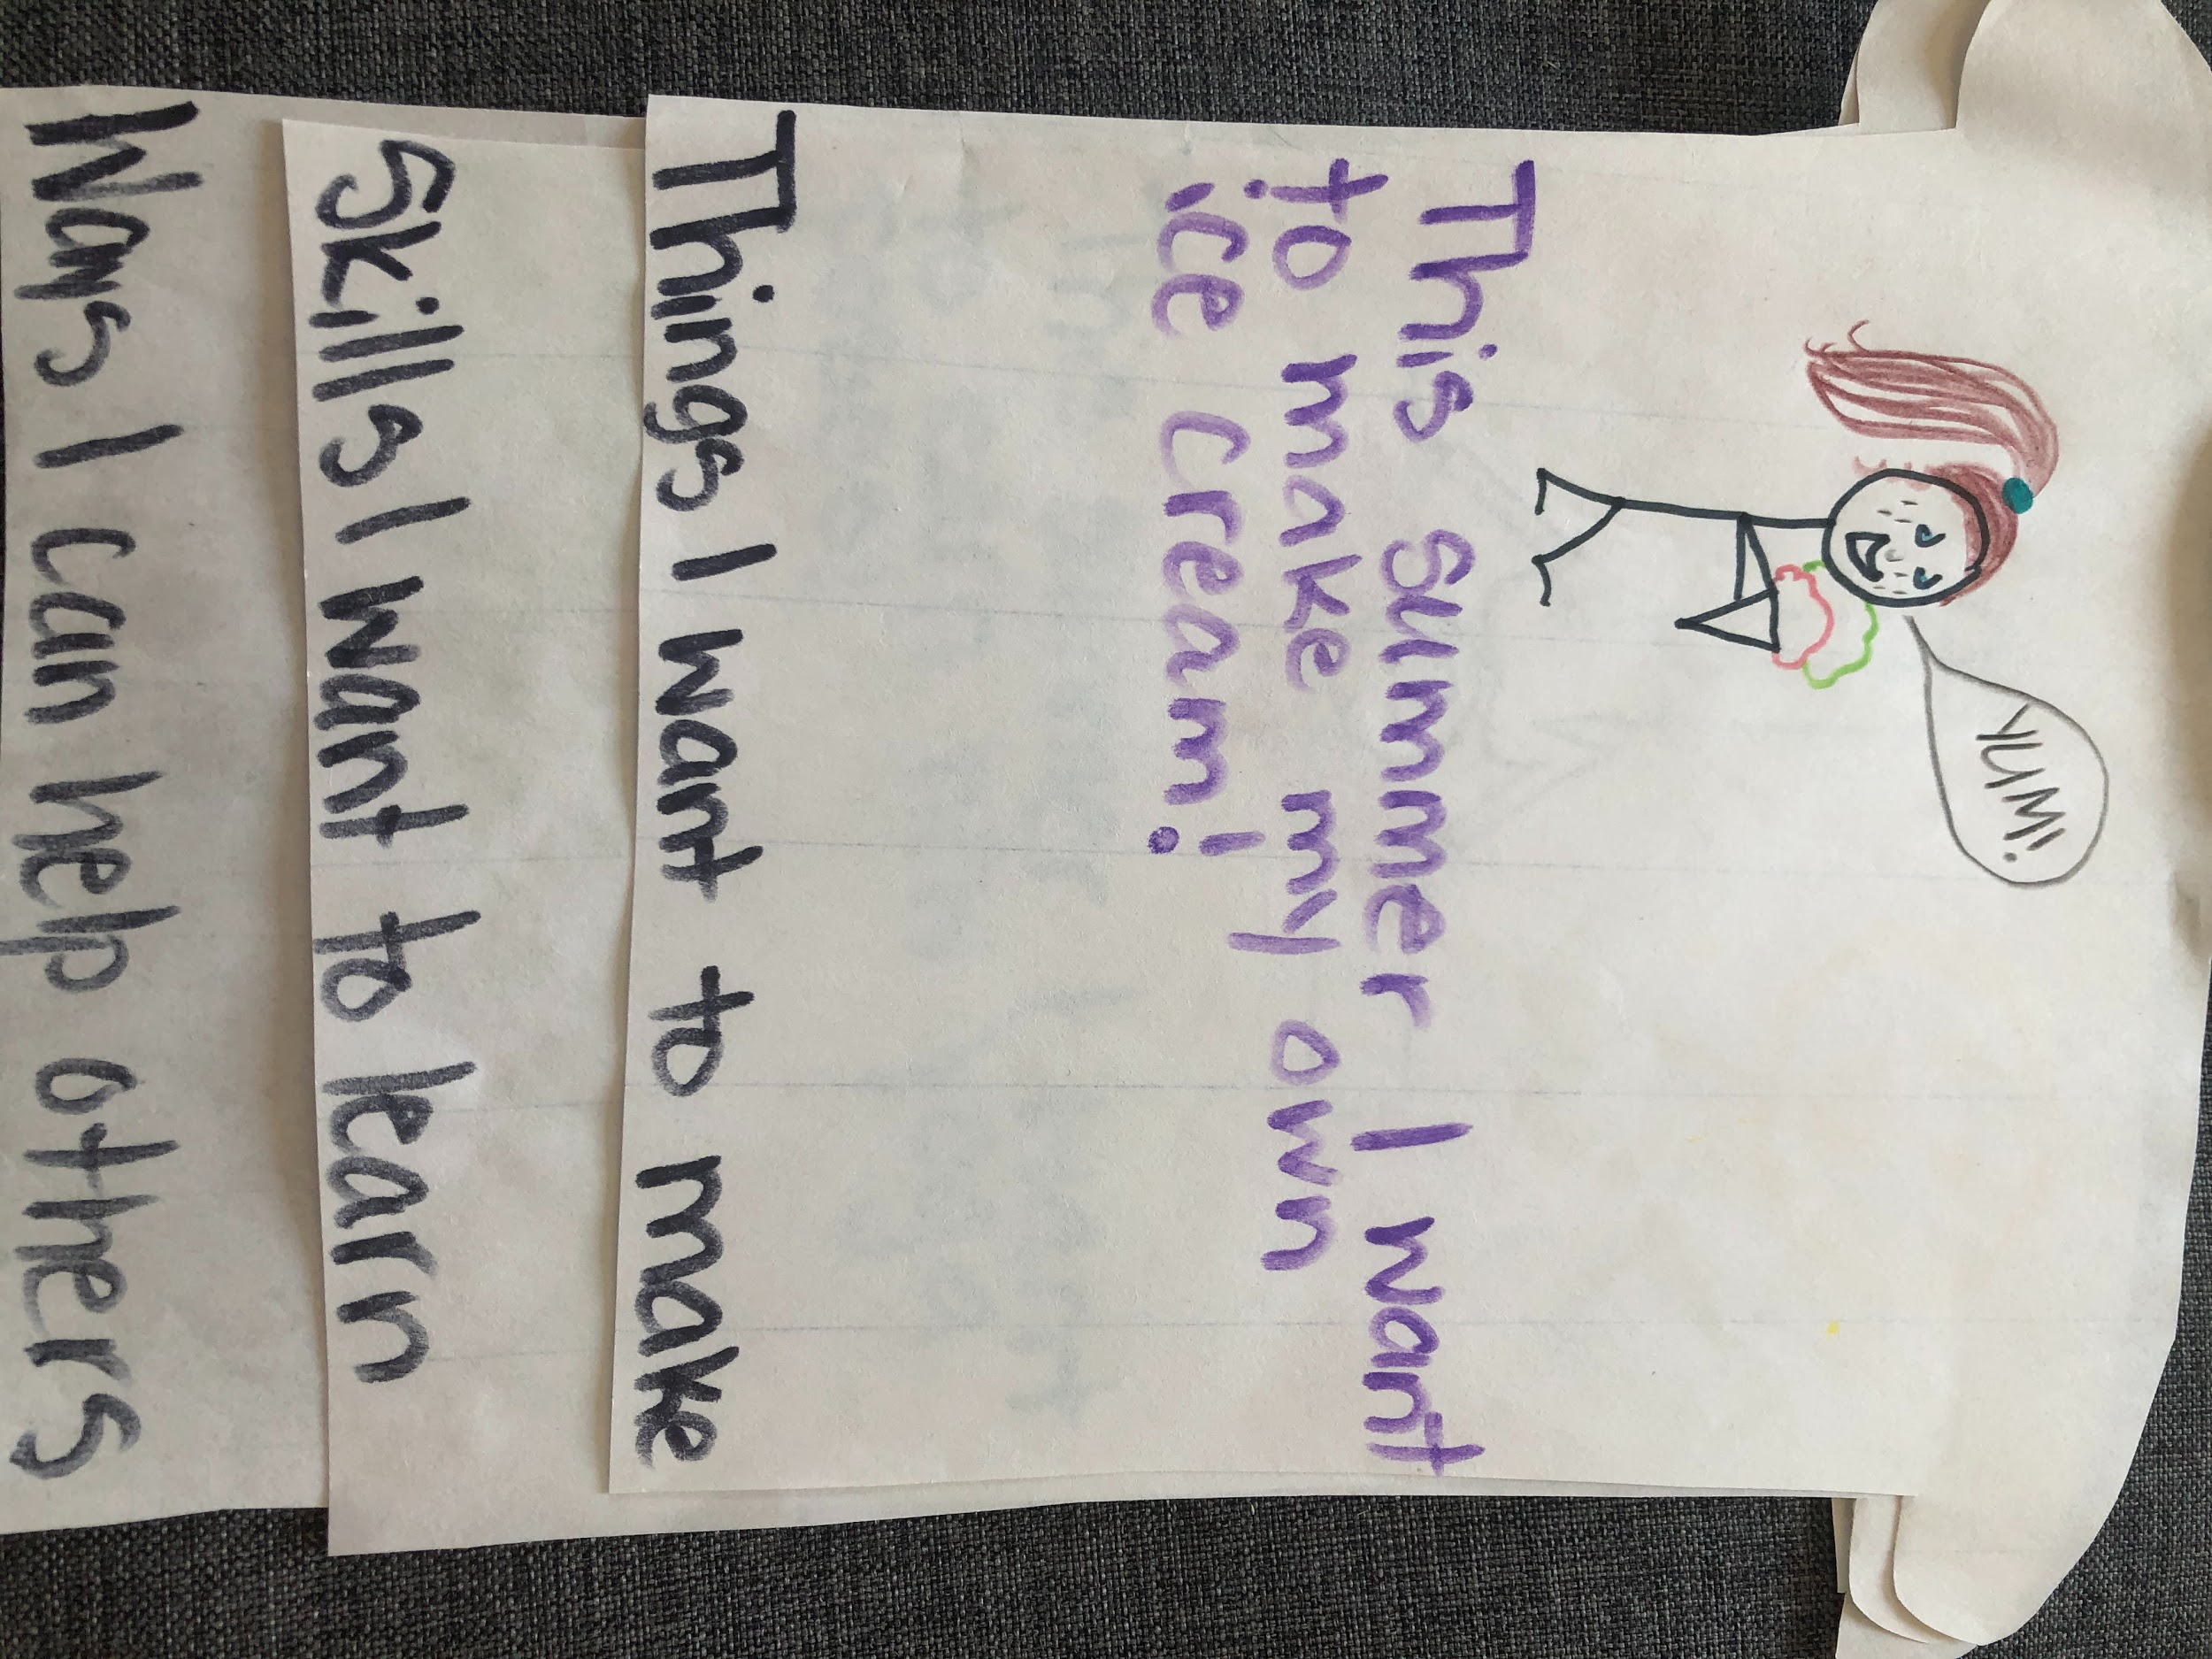 YUM!
This summer I want
to make my own
ice cream!
Things I want to make
Skills I want to learn
Ways I can help others